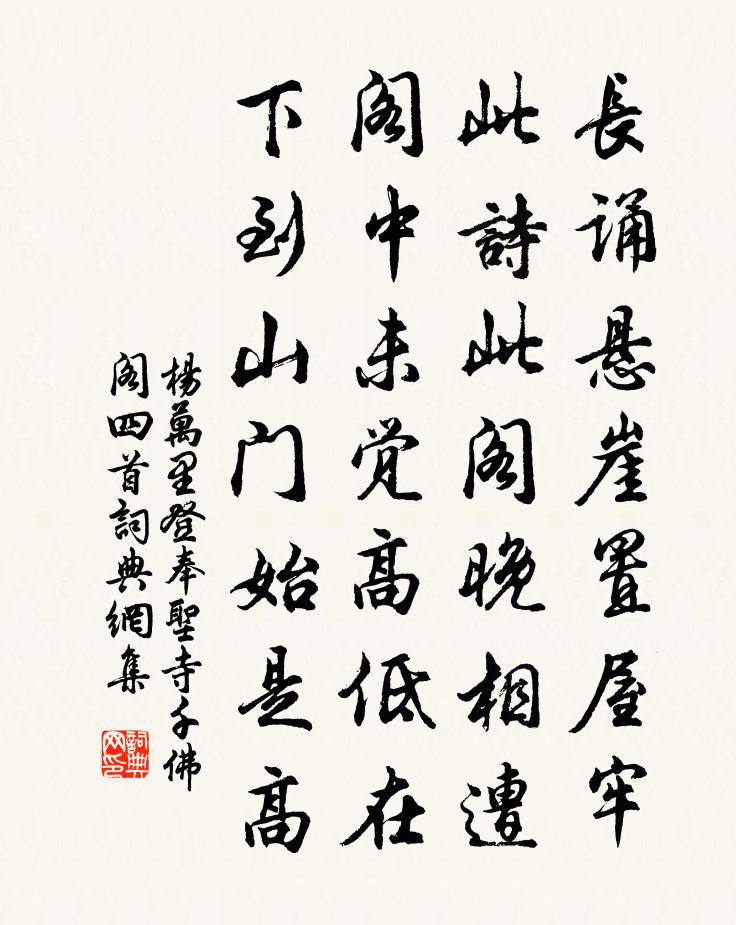 長诵悬崖置屋牢
此詩此阁晚相遭
阁中未觉高低在
下到山门始是高
楊萬里登奉聖寺千佛
阁四首詞典網集
詞典
网印